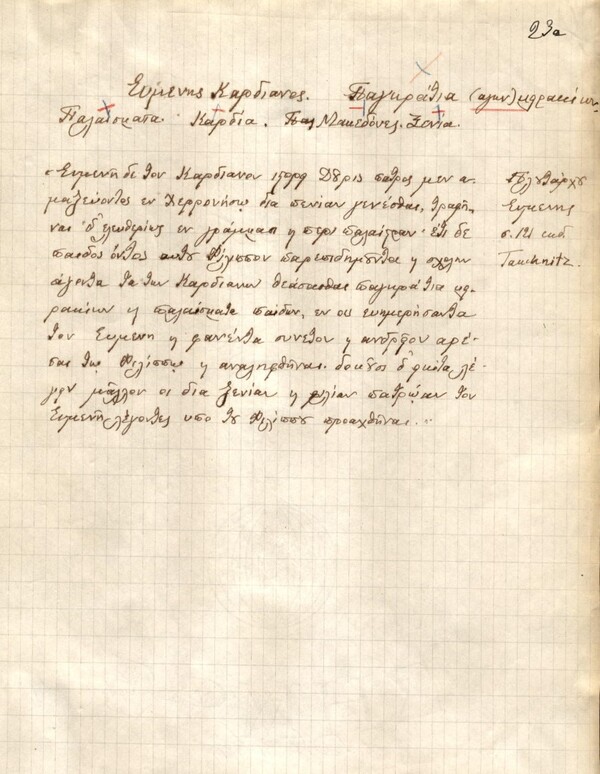 23a
Ευμενης Καρδιανος. Παγκράτια (αγων) μειρακίων
Παλαίσματα. Καρδία. Μακεδόνες. Ξενία.
Ευμενη δε τον Καρδιανον ιστορεί Δȣρις πατρος μεν α-
μαξεύοντος εν Χερρονήσω δια πενίαν γενέσθαι, τραφή-
ναι δ' ελευθερίως εν γράμμασι η περι παλαίστραν· έτι δε
παιδος όντος αυτȣ Φίλιππον παρεπιδημȣντα η σχολην
άγοντα τα των Καρδιανων θεάσασθαι παγκράτια μει-
ρακίων η παλαίσματα παίδων, εν οις ευημερήσαντα
τον Ευμενη η φανέντα συνετον η ανδρειον αρέ-
σαι τω Φιλίππω η αναληφθηναι. δοκȣσι δ' εικότα λέ-
γειν μαλλον οι δια ξενίαν η φιλίαν πατρώαν τον
Ευμενη λέγοντες υπο τȣ Φιλίππου προαχθηναι...
Πλȣτάρχου
Ευμενης
σ. 121 εκδ
Tauchnitz.